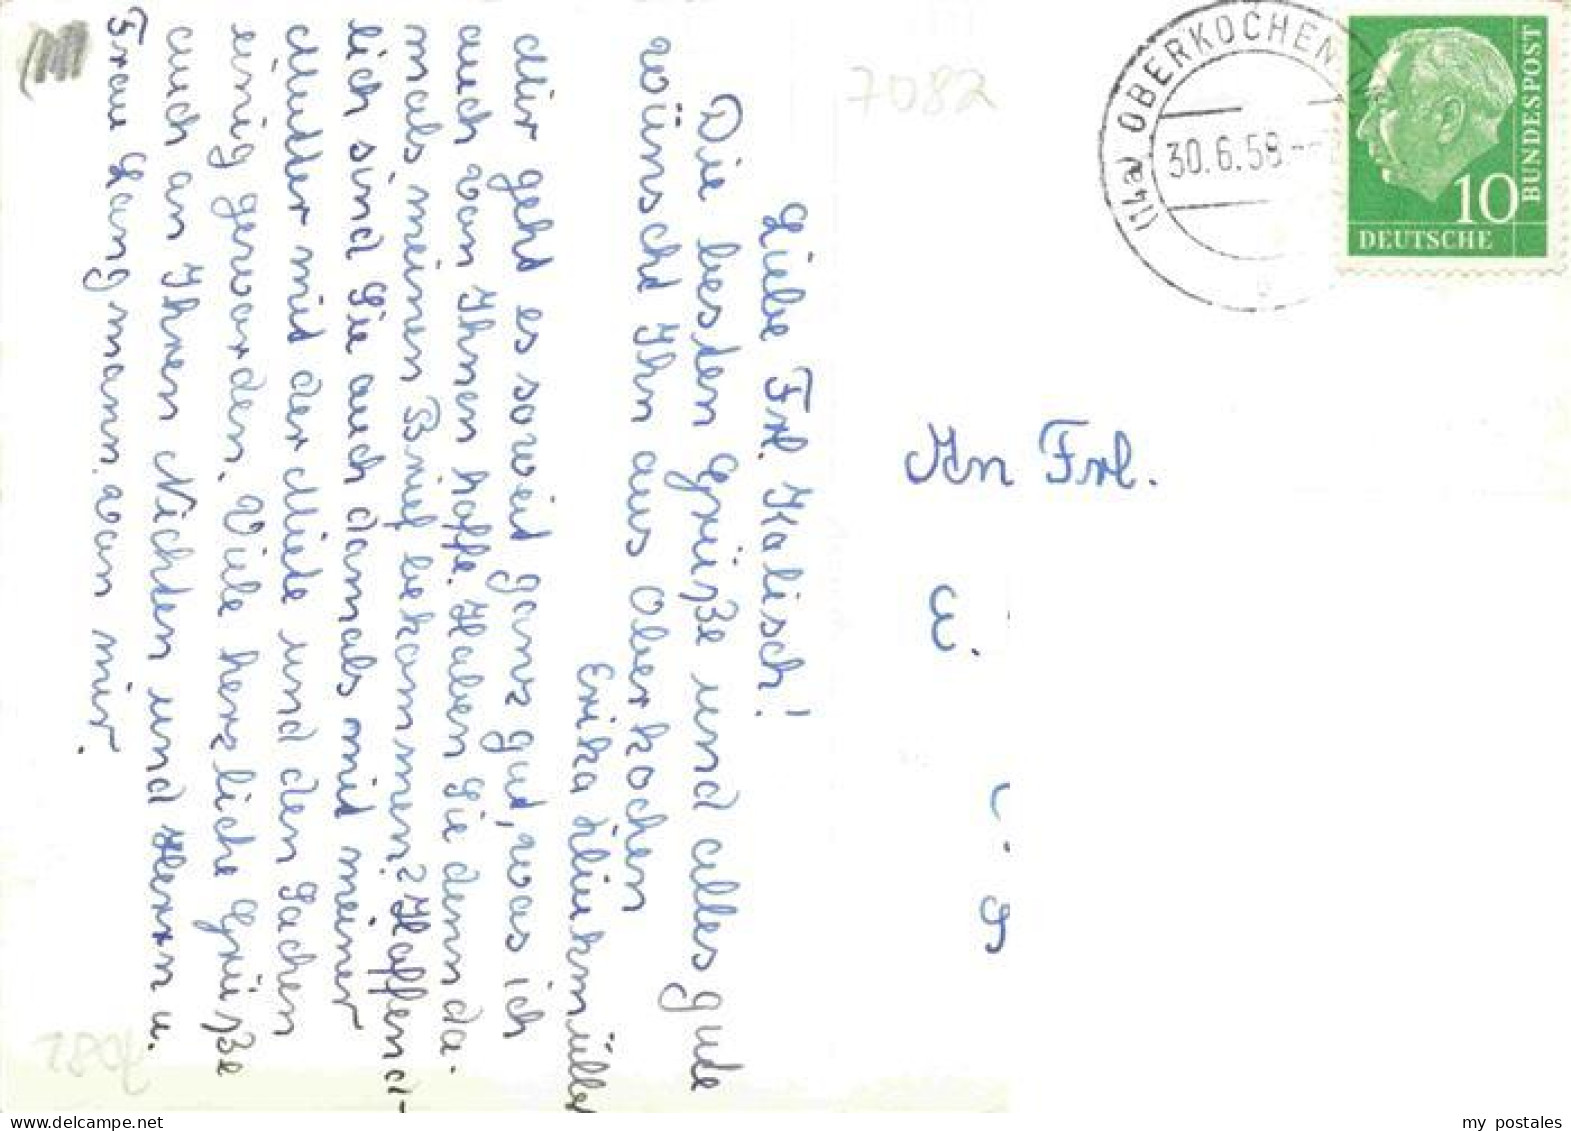 Liebe Frl. Kalisch!
Die besten Grüße und alles gute
wünscht Ihn aus Oberkochen
Erika
Mir geht es soweit ganz gut, was ich
auch von Ihnen hoffe. Haben Sie denn da-
mals meinen Brief bekommen? Hoffend-
lich sind Sie auch damals mit meiner
Mutter mit der Miete und den Sachen
einig geworden. Viele herzliche Grüße
auch an Ihren Nichten und Herrn u.
Frau Langmann von mir.
7082
(14a) OBERKOCHEN
30.6.58
10
DEUTSCHE
BUNDESPOST
An Frl.
E.
my postales